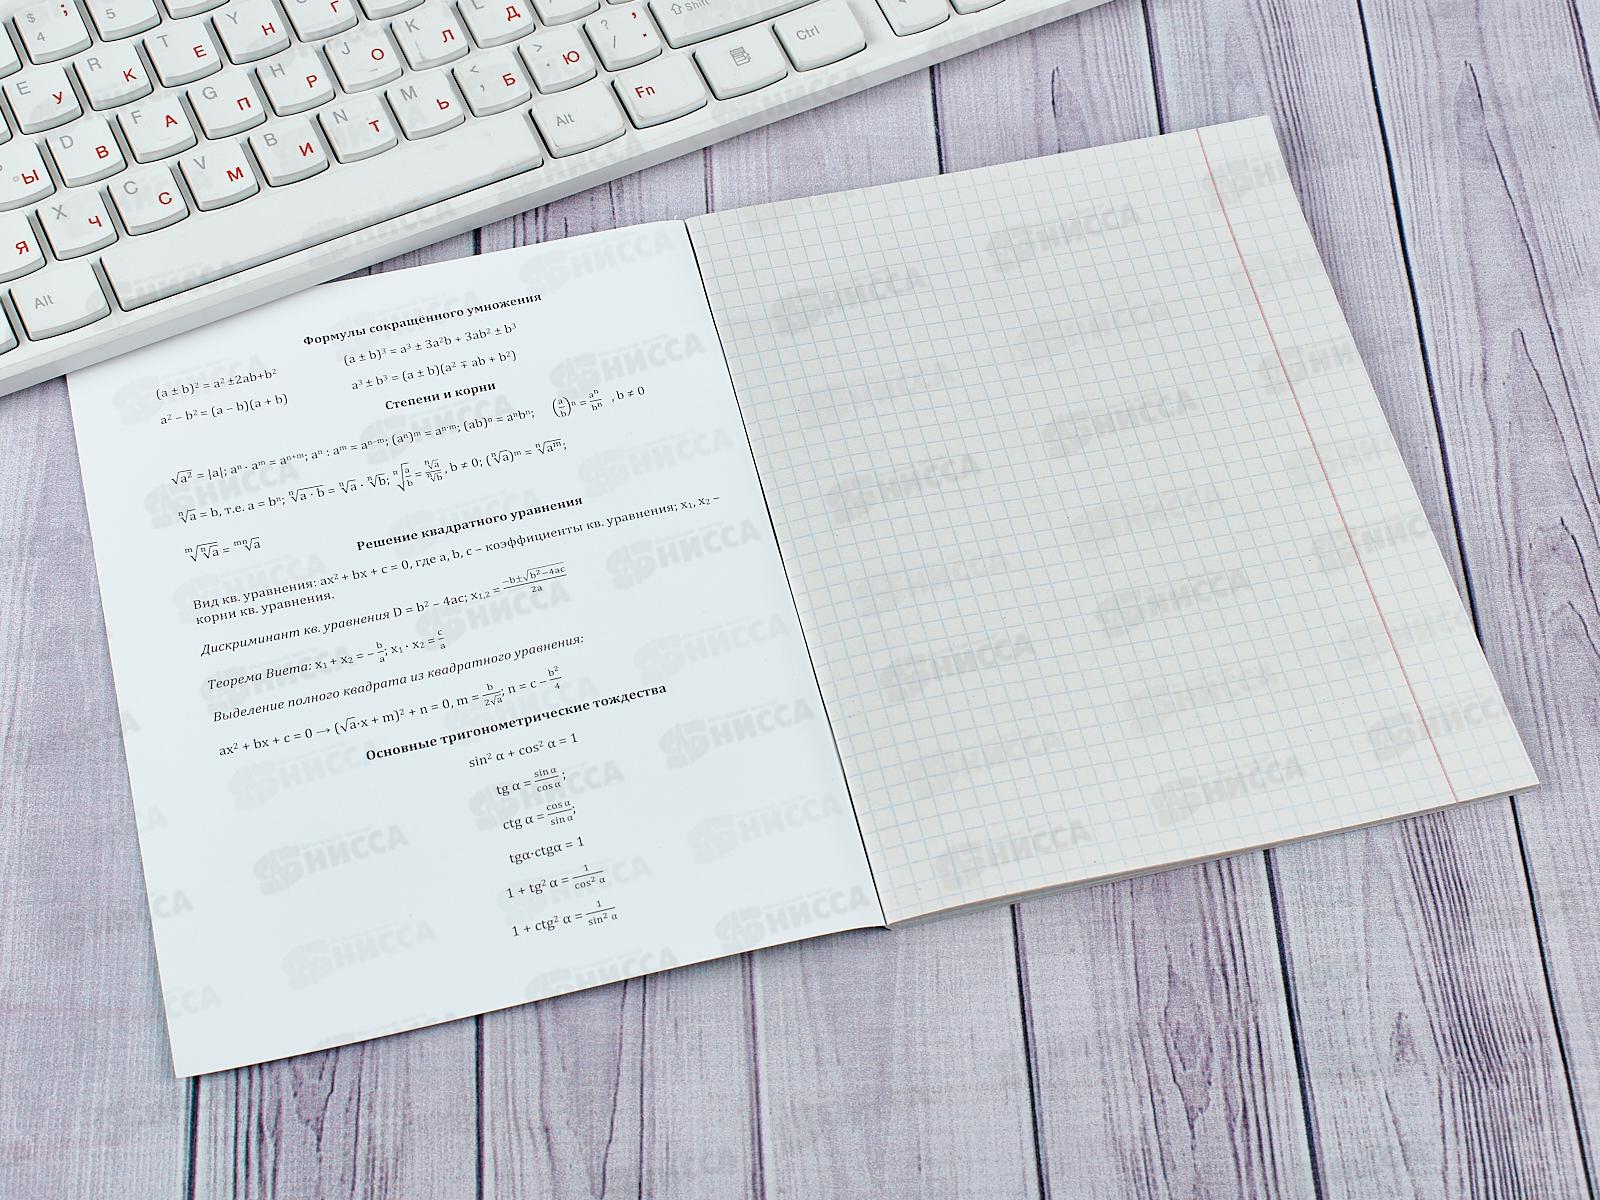 $ ; 4 5 T Е Y Н Г Д ? , / . ⇧ Shift
E У R К T Е Y Н J О K Л > . Ю Ctrl
D В F А G П H Р M Ь < , Б Fn
Ы C С V М B И N Т Alt
Я X Ч
Alt
Формулы сокращённого умножения
(a ± b)³ = a³ ± 3a²b + 3ab² ± b³
(a ± b)² = a² ±2ab+b²
a³ ± b³ = (a ± b)(a² ∓ ab + b²)
a² − b² = (a − b)(a + b)
Степени и корни
√a² = |a|; aⁿ · aᵐ = aⁿ⁺ᵐ; aⁿ : aᵐ = aⁿ⁻ᵐ; (aⁿ)ᵐ = aⁿ·ᵐ; (ab)ⁿ = aⁿbⁿ; (a/b)ⁿ = aⁿ/bⁿ , b ≠ 0
ⁿ√a = b, т.е. a = bⁿ; ⁿ√(a · b) = ⁿ√a · ⁿ√b; ⁿ√(a/b) = ⁿ√a/ⁿ√b, b ≠ 0; (ⁿ√a)ᵐ = ⁿ√aᵐ;
ᵐ√(ⁿ√a) = ᵐⁿ√a
Решение квадратного уравнения
Вид кв. уравнения: ax² + bx + c = 0, где a, b, c – коэффициенты кв. уравнения; x₁, x₂ –
корни кв. уравнения.
Дискриминант кв. уравнения D = b² − 4ac; x₁,₂ = (−b±√(b²−4ac))/2a
Теорема Виета: x₁ + x₂ = − b/a; x₁ · x₂ = c/a
Выделение полного квадрата из квадратного уравнения:
ax² + bx + c = 0 → (√a·x + m)² + n = 0, m = b/2√a; n = c − b²/4
Основные тригонометрические тождества
sin² α + cos² α = 1
tg α = sin α/cos α;
ctg α = cos α/sin α;
tgα·ctgα = 1
1 + tg² α = 1/cos² α
1 + ctg² α = 1/sin² α
НИССА